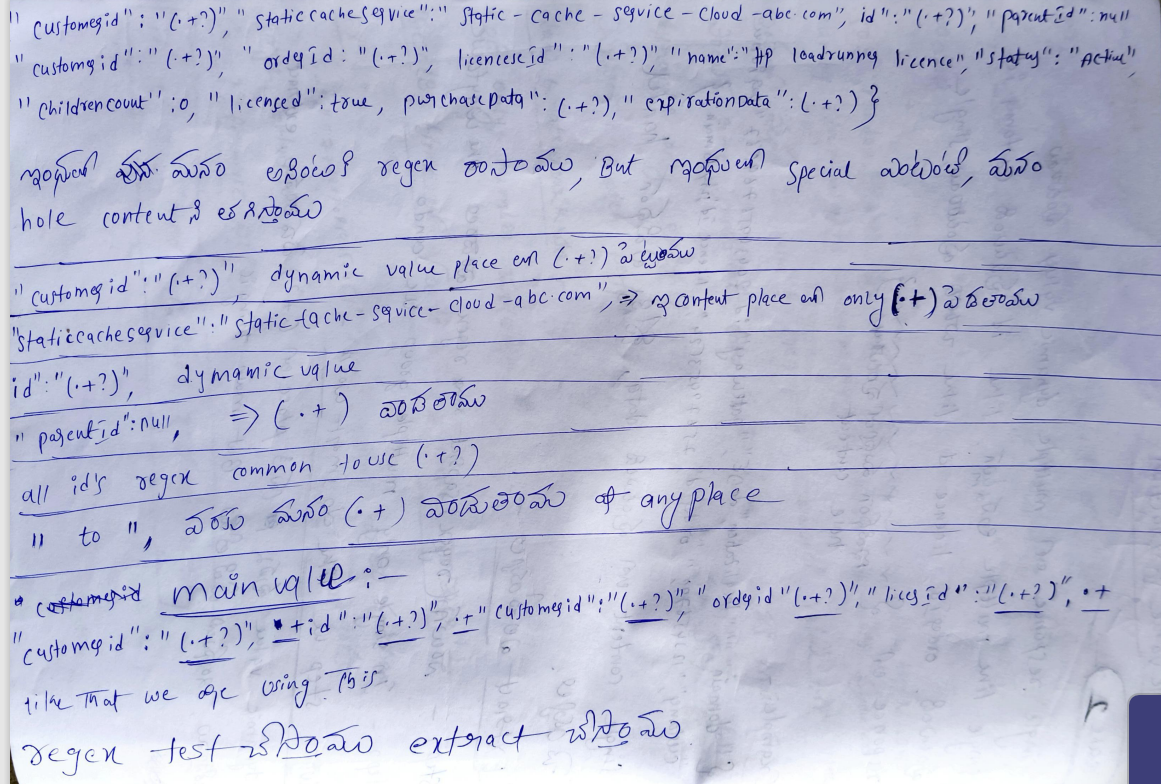 " customerid": "(.+?)", "staticcacheservice":" static - cache - service - cloud -abc.com", id":"(.+?)", "parentId": null
"customerid":"(.+?)", "orderId: "(.+?)", licenceseId": "(.+?)", "name":"HP loadrunner licence", "status": "Active",
"Childrencount": 0, "licensed": true, purchaseData": (.+?), "expirationData": (.+?) }
ఇందులో మనం అన్నింటికి regex రాస్తాము, But ఇందులో special ఎంటంటే, మనం
hole content ని తగ్గిస్తాము
"customerid":"(.+?)", dynamic value place లో (.+?) పెట్టుతాము
"staticcacheservice":"static-cache-service-cloud-abc.com", => ఇ content place లో only (.+) పెడతాము
id":"(.+?)", dymamic value
"parentId": null, => (.+) వాడతాము
all id's regex common to use (.+?)
" to ", వరకు మనం (.+) వాడుతాము any place
main value :-
"customerid": "(.+?)", .+id":"(.+?)", .+" customerid":"(.+?)", "orderid"(.+?)", "licesId":"(.+?)", .+
like That we are using This
regex test చేస్తాము extract చేస్తాము.